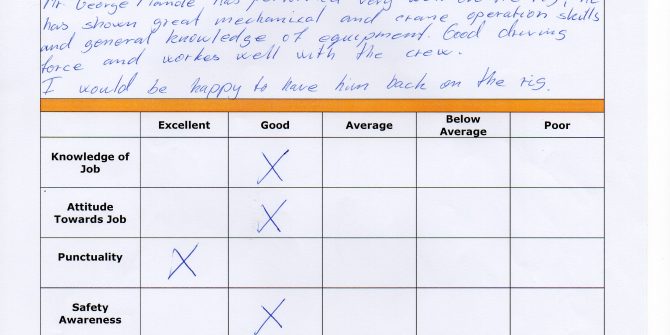 Mr. George
has shown great mechanical and crane operation skills
and general knowledge of equipment. Good driving
force and workes well with the crew.
I would be happy to have him back on the rig.
Excellent Good Average Below Average Poor
Knowledge of Job X
Attitude Towards Job X
Punctuality X
Safety Awareness X